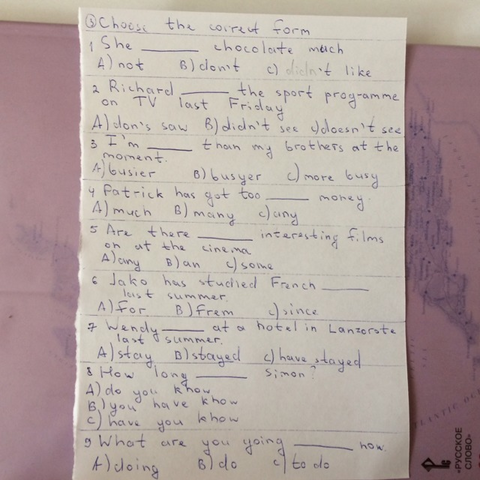 ③ Choose the correct form
1 She ______ chocolate much
A) not B) don't C) didn't like
2 Richard ______ the sport programme
on TV last Friday
A) don's saw B) didn't see C) doesn't see
3 I'm ______ than my brothers at the
moment.
A) busier B) busyer C) more busy
4 Patrick has got too ______ money.
A) much B) many C) any
5 Are there ______ interesting films
on at the cinema
A) any B) an C) some
6 Jako has studied French ______
last summer.
A) for B) from C) since
7 Wendy ______ at a hotel in Lanzorote
last summer.
A) stay B) stayed C) have stayed
8 How long ______ simon?
A) do you know
B) you have know
C) have you know
9 What are you going ______ now
A) doing B) do C) to do
«РУССКОЕ
СЛОВО»